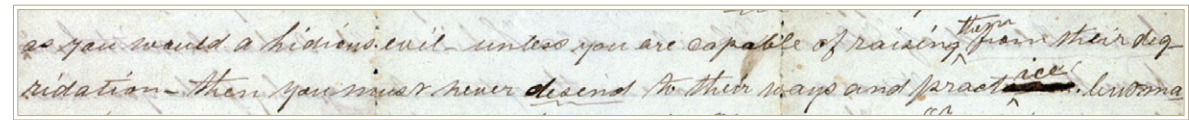 as you would a hidious evil - unless you are capable of raising them from their deg
ridation - then you must never desend to their ways and practice.